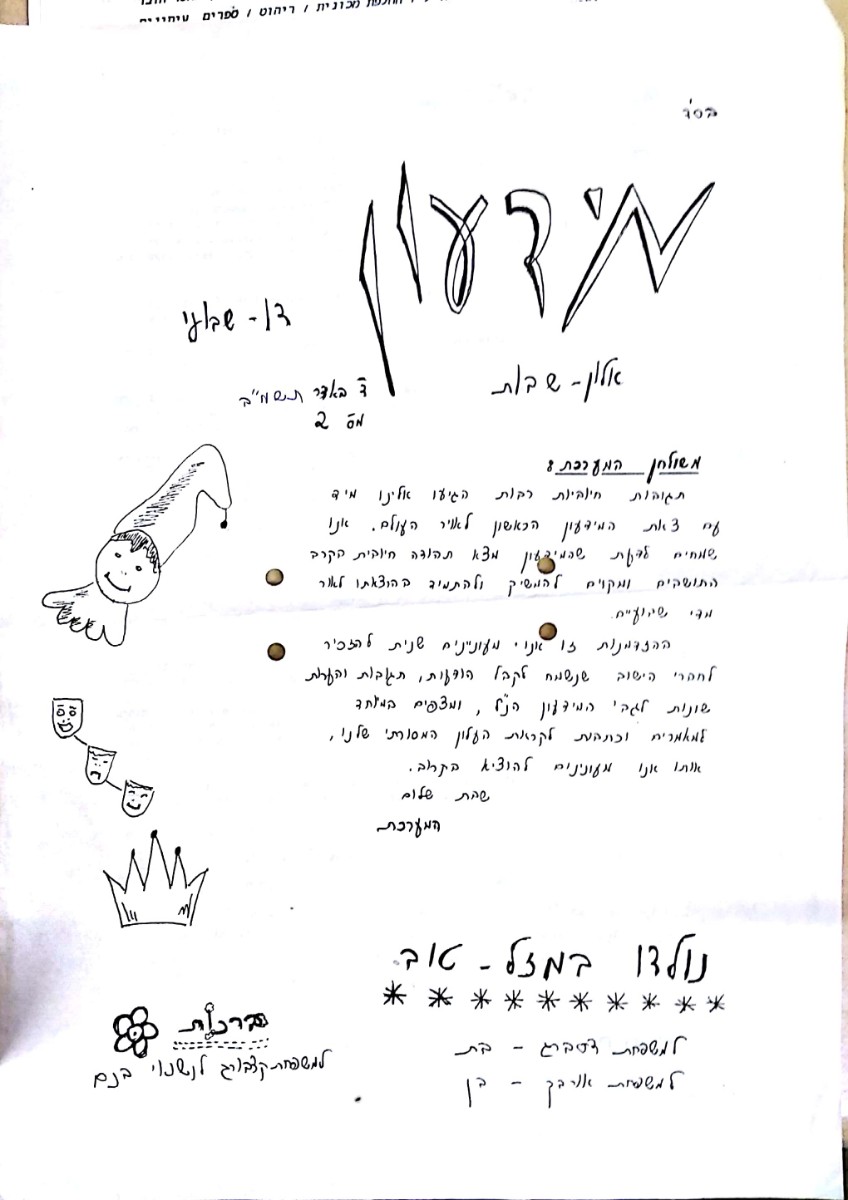 החלפת מכונית / ריהוט / ספרים
בס"ד
מידעון
דו - שבועי
אלון - שבות
ד' באדר תשמ"ב
מס' 2
משולחן המערכת:
תגובות חיוביות רבות הגיעו אלינו מיד
עם צאת המידעון הראשון לאויר העולם. אנו
שמחים לדעת שהמידעון מצא תהודה חיובית הקרב
התושבים ומקוים להמשיק ולהתמיד בהוצאתו לאור
מדי שבועיים.
בהזדמנות זו אנו מעוניינים שנית להזכיר
לחברי הישוב שנשמח לקבל הודעות, תגובות והערות
שונות לגבי המידעון הנ"ל, ומצפים במיוחד
למאמרים וכתבות לקראת העלון המסורתי שלנו,
אותו אנו מעונינים להוציא בקרוב.
שבת שלום
המערכת
נולדו במזל - טוב
* * * * * * * * * *
למשפחת - בת
למשפחת אורבך - בן
ברכות
למשפחת קצבורג לנשואי בנם